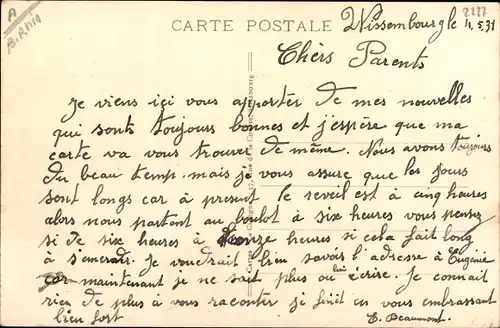 A
B. Rhin
CARTE POSTALE
Wissembourg le 11.5.31
2227
Chèrs Parents
Je viens içi vous apporter de mes nouvelles
qui sonts toujours bonnes et j'espère que ma
carte va vous trouver de même. Nous avons toujours
du beau temp. mais je vous assure que les jours
sont longs car à présent le reveil est à çinq heures
alors nous partont au boulot à six heures vous pensez
si de six heures à onze heures si cela fait long
à s'emerdir. Je voudrait bien savoir l'adresse à Eugènie
car maintenant je ne sait plus ou lui écrire. Je connait
rien de plus à vous raconter si finit en vous embrassant
bien fort
E. Beaumont.